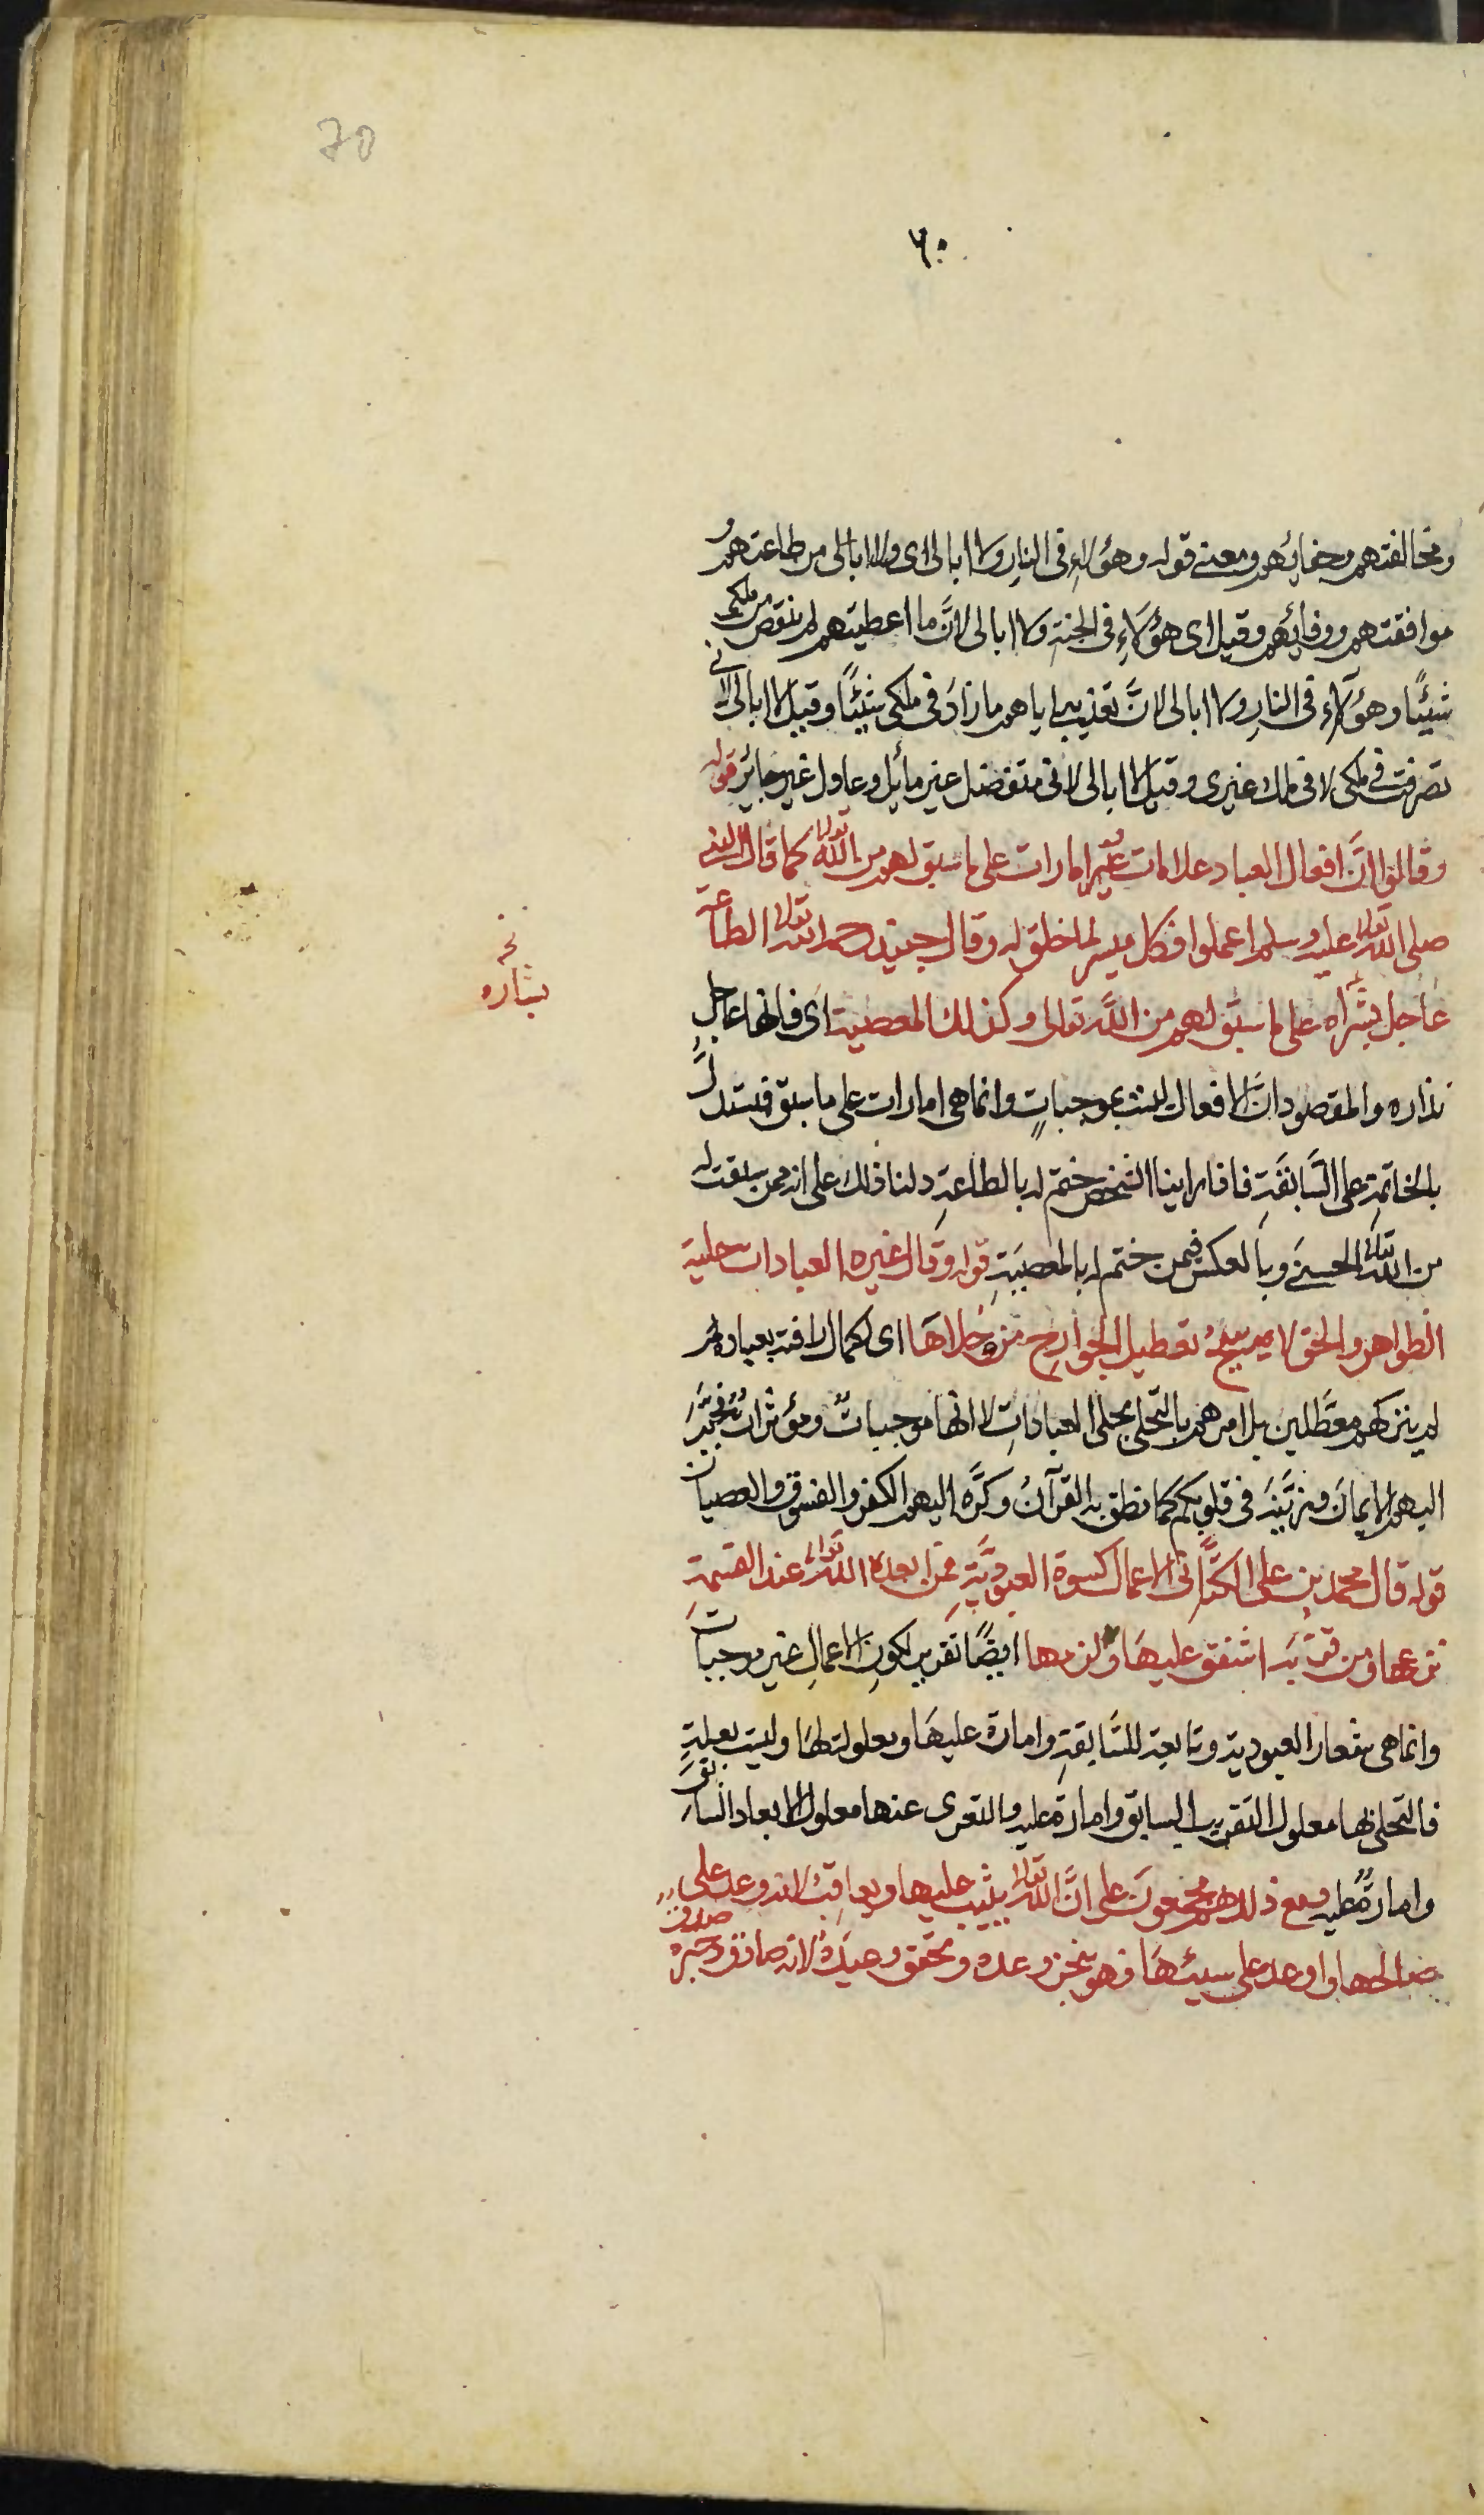 70
٦٠
ومخالفتهم وجفائهم ومعنى قوله وهؤلاء فى النار ولا ابالى اى ولا ابالى من طاعتهم و
موافقتهم ووفائهم وقيل اى هؤلاءِ فى الجنة ولا ابالى لانَّ ما اعطيتهم لم ينقص من ملكى
شيئًا وهؤلآء فى النارِ ولا ابالى لانَّ تعذيبى اياهم ما زادَ فى ملكى شيئًا وقيل لا ابالى لانى
تصرفت فى ملكى لا فى ملك غيرى وقيل لا ابالى لانى متفضل غير مائل وعادل غير جائر قوله
وقالوا انَّ افعال العباد علامات امارات على ما سبق لهم من الله تعالى كما قال النبى
صلى الله تعالى عليه وسلم اعملوا فكل ميسر لما خلق له وقال جنيد رحمه الله تعالى الطاعة
عاجل بشراه على ما سبق لهم من الله تعالى وكذلك المعصية اى فانها عاجل
نخـ
بشاره
نذاره والمقصود انَّ الافعال ليست بموجباتٍ وانما هى امارات على ما سبق فيستدلُّ
بالخاتمةِ على السَّابقَةِ فاذا راينا الشخص ختم له بالطاعةِ دلنا ذلك على انه ممن سبقت له
من الله تعالى الحسنى وبالعكس فيمن ختم له بالمعصيَةِ قوله وقال غيره العبادات حلية
الظواهر والحق لا يبيح تعطيل الجوارح من حلاهَا اى لكمال رافته بعباده
لم يتركهم معطَّلين بل امرهم بالتَّحلى بحلى العباداتِ لا انها موجباتٌ ومؤثراتٌ
اليهم الايمانَ وزيَّنه فى قلوبكم كما نطق به القرآنُ وكرَّه اليهم الكفر والفسوق والعصيان
قوله قال محمد بن على الكتَّانى الاعمال كسوة العبوديَّةِ فمن ابعده الله تعالى عند القسمةِ
نزعها ومن قربَه اشفق عليهَا ولزمها ايضًا تقرير لكونِ الاعمالِ غير موجبات
وانما هى شعار العبودية وتابعة للسَّابقةِ وامارة عليهَا ومعلولة لهَا وليست بعلةٍ
فالتحلى بها معلول التقريب السابق وامارة عليه والتعرى عنها معلول الابعاد السابق
وامارةٌ عليه ومع ذلك هم مجمعونَ على انَّ الله تعالى يثيب عليها ويعاقِبُ لانه وعد على
صالحها واوعد على سيئهَا فهو ينجز وعده ويحقق وعيدَهُ لانه صادق وخبره صدق